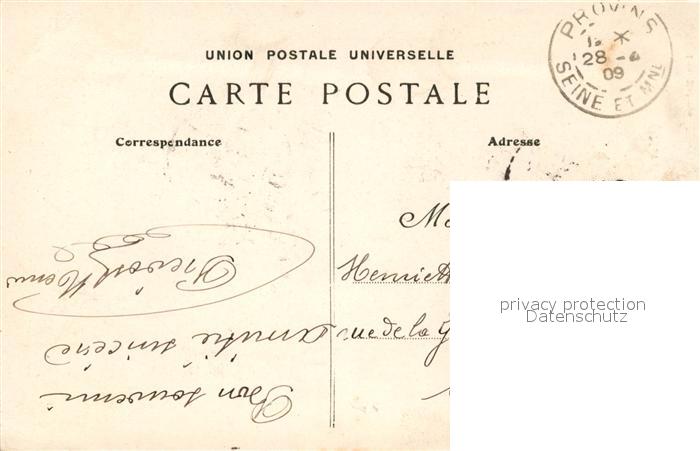 PROVINS
1* *
28 - 4
09
SEINE ET MNE
UNION POSTALE UNIVERSELLE
CARTE POSTALE
Correspondance
Adresse
Bon souvenir
amitié sincère
M
Henriett
rue de la G
privacy protection
Datenschutz